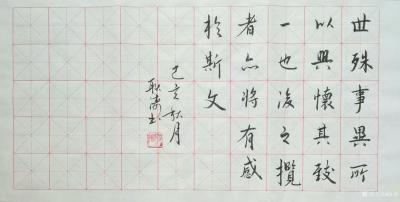 世殊事異所
以興懷其致
一也後之攬
者亦將有感
於斯文
己亥秋月
耿濤書